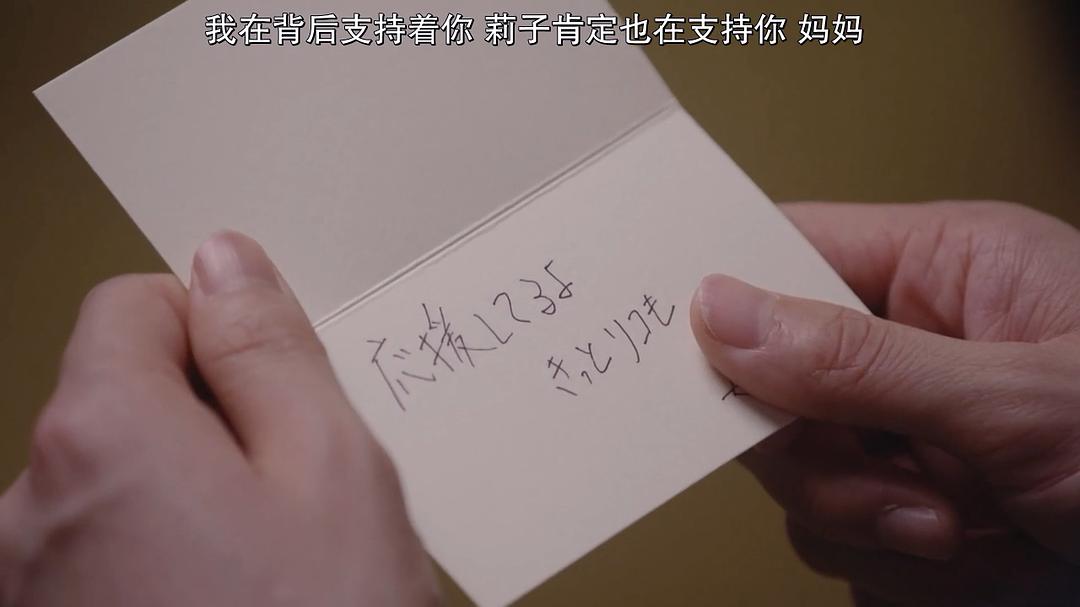 我在背后支持着你 莉子肯定也在支持你 妈妈
応援してるよ
きっとリコも